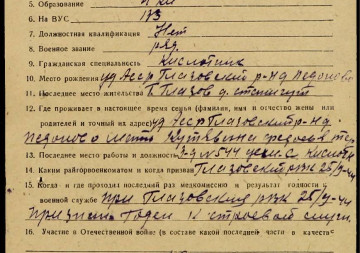 5. Образование
6. На ВУС 173
7. Должностная квалификация Нет
8. Военное звание ряд.
9. Гражданская специальность Кислотник
10. Место рождения уд Асср Глазовский р-на
11. Последнее место жительства г. Глазов д.
12. Где проживает в настоящее время семья (фамилия, имя и отчество жены или
родителей и точный адрес) уд Асср Глазовский р-на
13. Последнее место работы и должность З-д №544
14. Каким райгорвоенкоматом и когда призван Глазовский рвк 25/9-44
15. Когда и где проходил последний раз медкомиссию и результат годности к
военной службе при Глазовские рвк 25/9-44
признать годен к строевой служ.
16. Участие в Отечественной войне (в составе какой последней части, в качестве